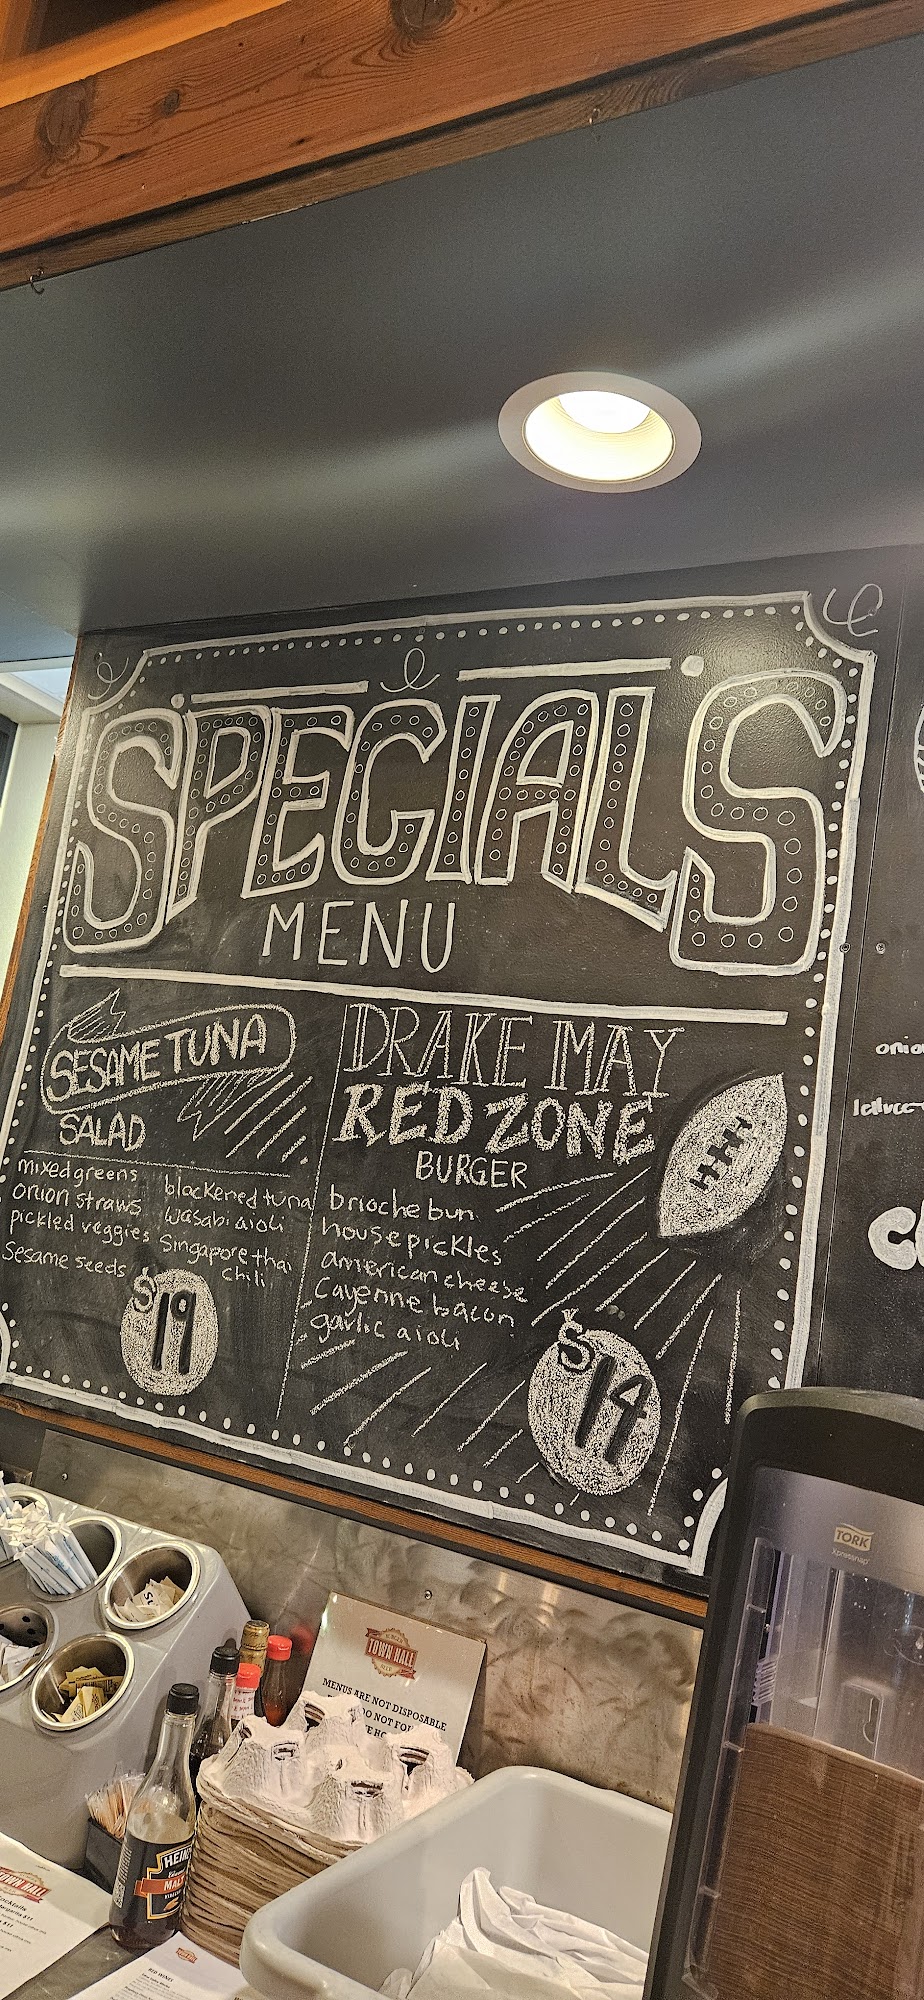 SPECIALS
MENU
SESAME TUNA
SALAD
mixed greens
onion straws
pickled veggies
Sesame seeds
blackened tuna
wasabi aioli
Singapore thai
chili
$19
DRAKE MAY
RED ZONE
BURGER
brioche bun
house pickles
american cheese
Cayenne bacon
garlic aioli
$14
TORK
Xpressnap
TOWN HALL
MENUS ARE NOT DISPOSABLE
DO NOT
HEINZ
MALT
VINEGAR
TOWN HALL
RED WINES